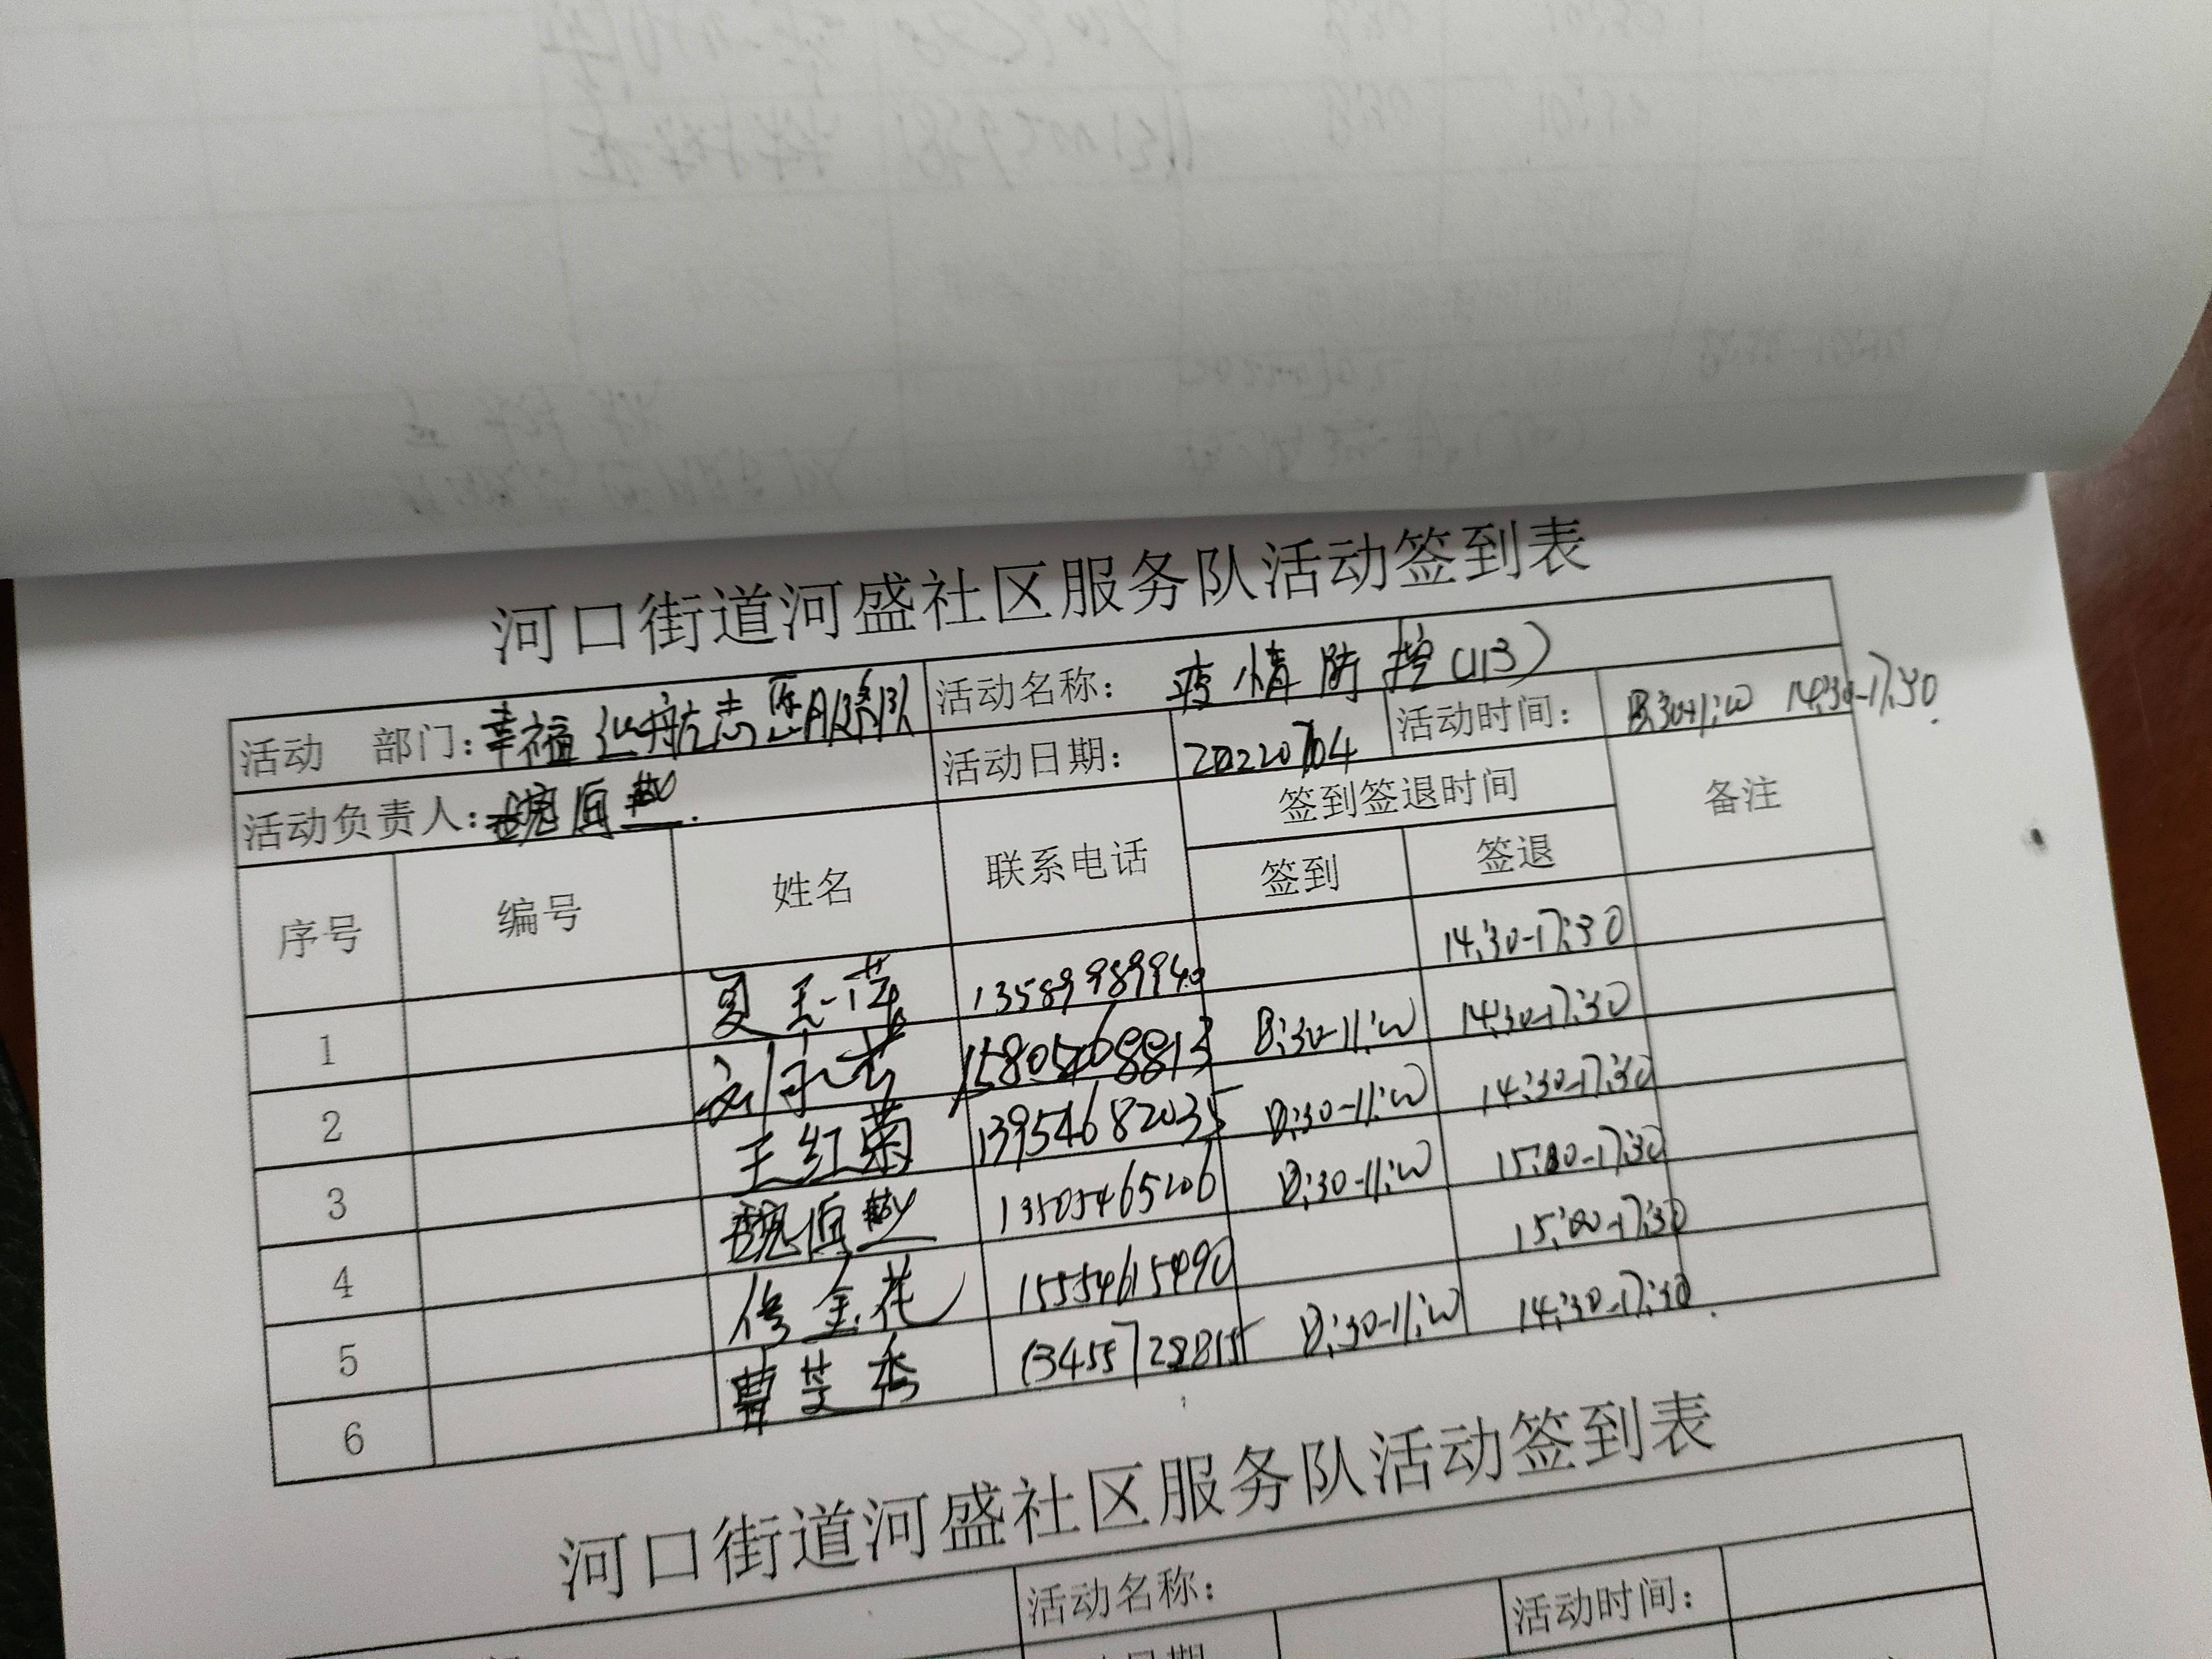 河口街道河盛社区服务队活动签到表
活动 部门：幸福红舟志愿服务队 活动名称：疫情防控(113)
活动负责人： 活动日期：20220704 活动时间：8:30-11:00 14:30-17:30
序号 编号 姓名 联系电话 签到签退时间 备注
签到 签退
1 夏玉萍 13589989940 14:30-17:30
2 15805468813 8:30-11:00 14:30-17:30
3 王红菊 13954682035 8:30-11:00 14:30-17:30
4 13505465206 8:30-11:00 15:00-17:30
5 修金花 15554615490 15:00-17:30
6 曹芝秀 13455728815 8:30-11:00 14:30-17:30
河口街道河盛社区服务队活动签到表
活动名称：
活动时间：